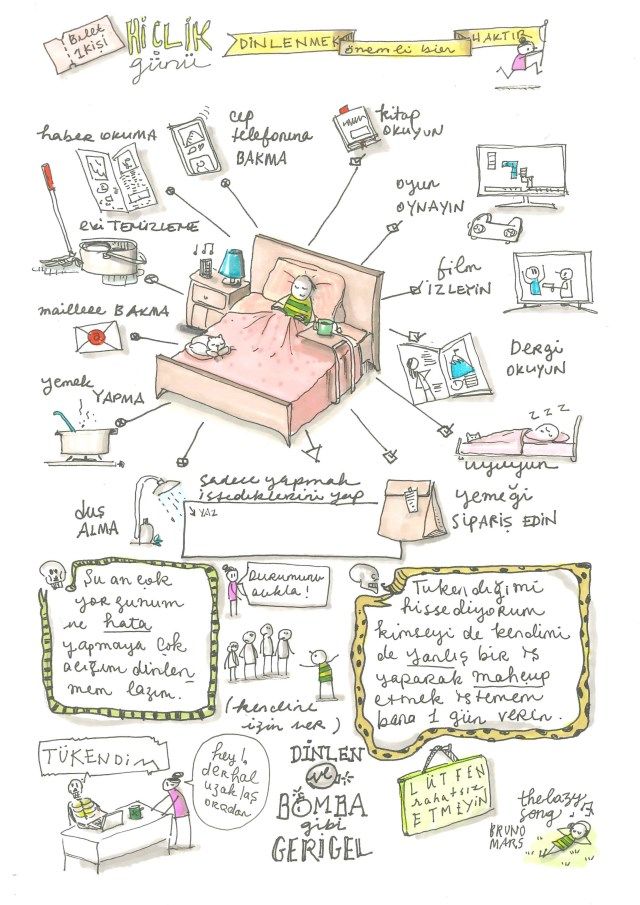 Bilet
1 Kişi
HİÇLİK
günü
DİNLENMEK önemli bir HAKTIR
haber OKUMA
cep
telefonuna
BAKMA
kitap
OKUYUN
oyun
OYNAYIN
evi TEMİZLEME
film
İZLEYİN
maillere BAKMA
Dergi
OKUYUN
yemek
YAPMA
z z z
uyuyun
duş
ALMA
sadece yapmak
istediklerini yap
YAZ
yemeği
SİPARİŞ EDİN
Şu an çok
yorgunum
ve hata
yapmaya çok
açığım dinlen
mem lazım.
Durumunu
açıkla!
(kendine
izin ver)
Tükendiğimi
hissediyorum
kimseyi de kendimi
de yanlış bir iş
yaparak mahçup
etmek istemem
bana 1 gün verin.
TÜKENDİM
hey!,
derhal
uzaklaş
oradan
DİNLEN
ve
BOMBA
gibi
GERİGEL
LÜTFEN
rahatsız
ETMEYİN
the lazy
song
BRUNO
MARS